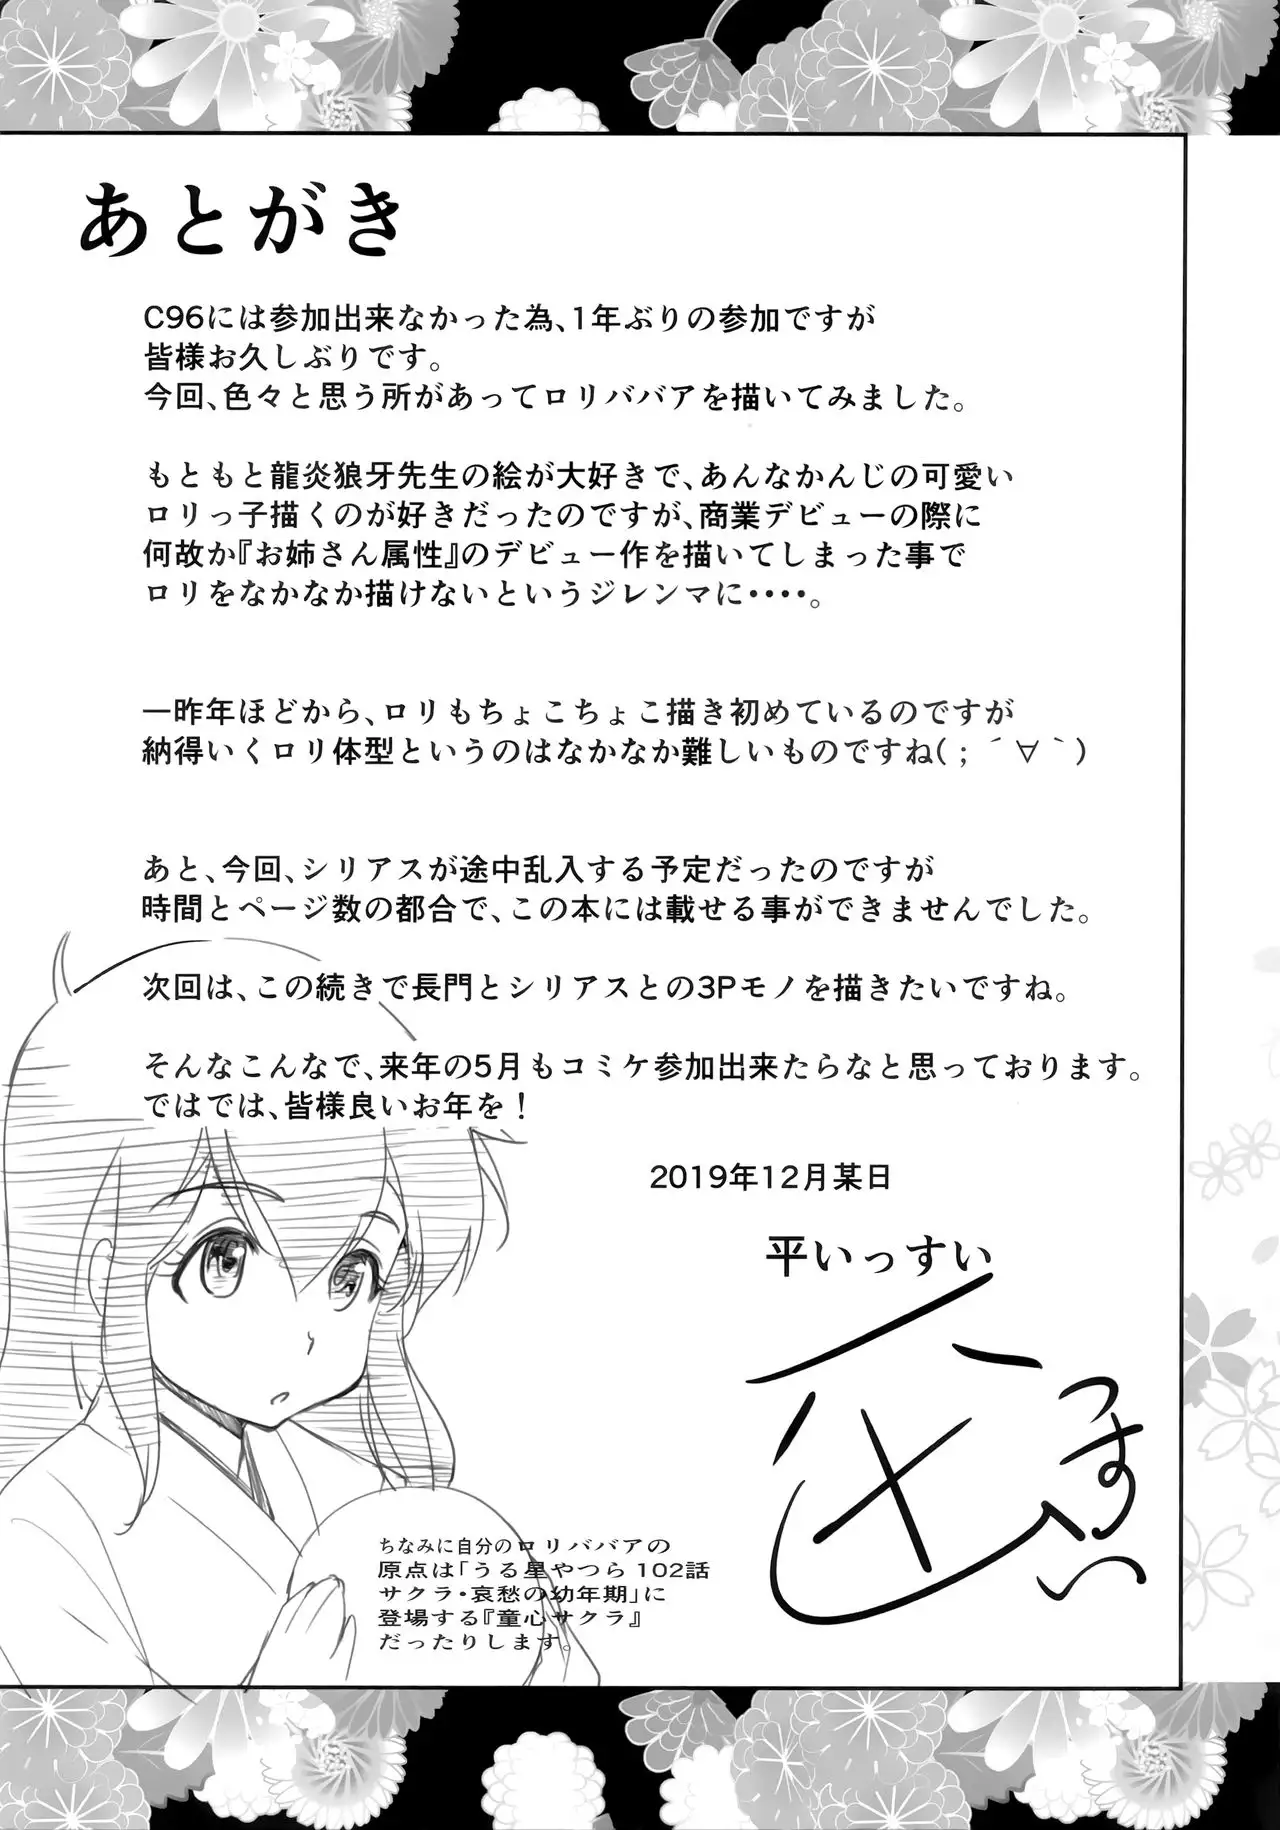 あとがき
C96には参加出来なかった為、1年ぶりの参加ですが
皆様お久しぶりです。
今回、色々と思う所があってロリババアを描いてみました。
もともと龍炎狼牙先生の絵が大好きで、あんなかんじの可愛い
ロリっ子描くのが好きだったのですが、商業デビューの際に
何故か『お姉さん属性』のデビュー作を描いてしまった事で
ロリをなかなか描けないというジレンマに・・・・。
一昨年ほどから、ロリもちょこちょこ描き初めているのですが
納得いくロリ体型というのはなかなか難しいものですね(；´∀｀)
あと、今回、シリアスが途中乱入する予定だったのですが
時間とページ数の都合で、この本には載せる事ができませんでした。
次回は、この続きで長門とシリアスとの3Pモノを描きたいですね。
そんなこんなで、来年の5月もコミケ参加出来たらなと思っております。
ではでは、皆様良いお年を！
2019年12月某日
平いっすい
平いっすい
ちなみに自分のロリババアの
原点は「うる星やつら 102話
サクラ・哀愁の幼年期」に
登場する『童心サクラ』
だったりします。